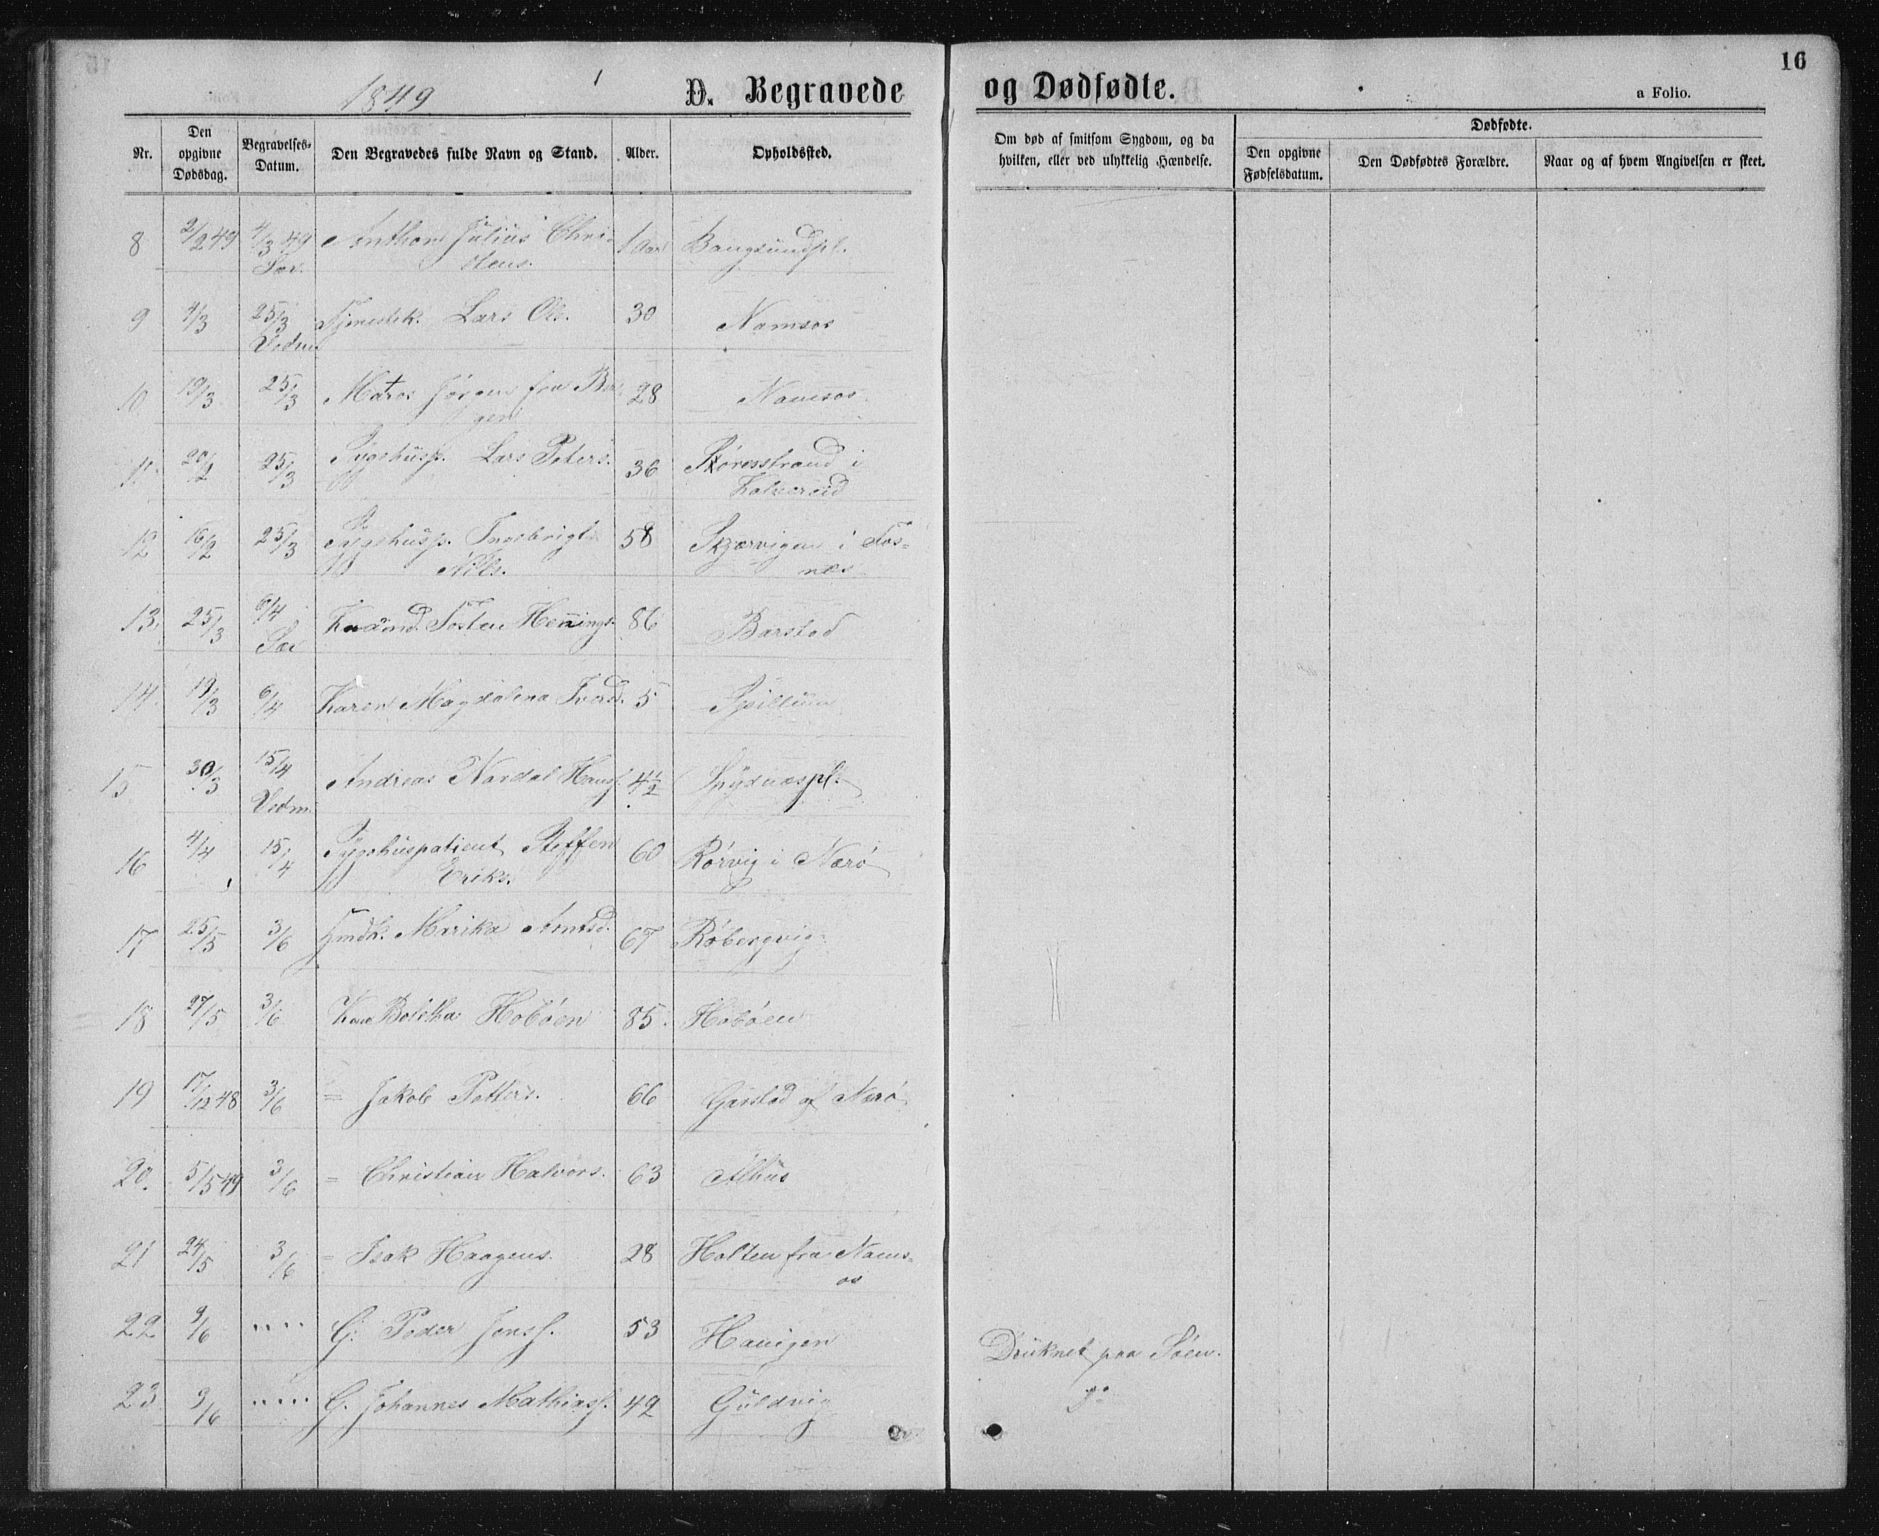 1849 D. Begravede og Dødfødte. 16
a Folio.
Nr. Den opgivne Dødsdag. Begravelses-Datum. Den Begravedes fulde Navn og Stand. Alder. Opholdssted. Om død af smitsom Sygdom, og da hvilken, eller ved ulykkelig Hændelse. Dødfødte.
Den opgivne Fødselsdatum. Den Dødfødtes Forældre. Naar og af hvem Angivelsen er skeet.
8 2/2 49 4/3 49 Anthon Julius Chri- 1 Aar Bangsundpl.
Sæv. stens.
9 4/3 25/3 Tjenestek. Lars Ols. 30 Namsos
Vedm.
10 19/3 25/3 Matros Jørgen fra Ber- 28 Namsos.
gen
11. 20/2 25/3 Sygehusp. Lars Peters. 36 i
Kolvereid
12 16/2 25/3 Sygehusp. Ingebrigt 58 Skjærvigen i Fos-
Nils. næs
13. 25/3 6/4 Tosten Hennings. 86 Barstad
Sæv
14. 19/3 6/4 Karen Magdalena 5 Spillum
15 30/3 15/4 Andreas Nardal Hansf. 4 1/2
Vedm.
16 4/4 15/4 Sygehuspatient Steffen 60 Rørvig i Nærø
Eriks.
17 25/5 3/6 Marika 67 Røbergvig
18 27/5 3/6 Hobøen 85. Hobøen
19 17/12 48 3/6 = Jakob Petters. 66 Garstad af Nærø
20. 5/5 49 3/6 = Christian Halvors. 63 Alhus
21 24/5 3/6 = Isak Haagens. 28 Holten fra Nams-
os
22 9/6 " " " " G. Peder Jonsf. 53 Havigen Druknet paa Søen.
23 9/6 " " " " G. Johannes Mathiasf. 42 Guldvig